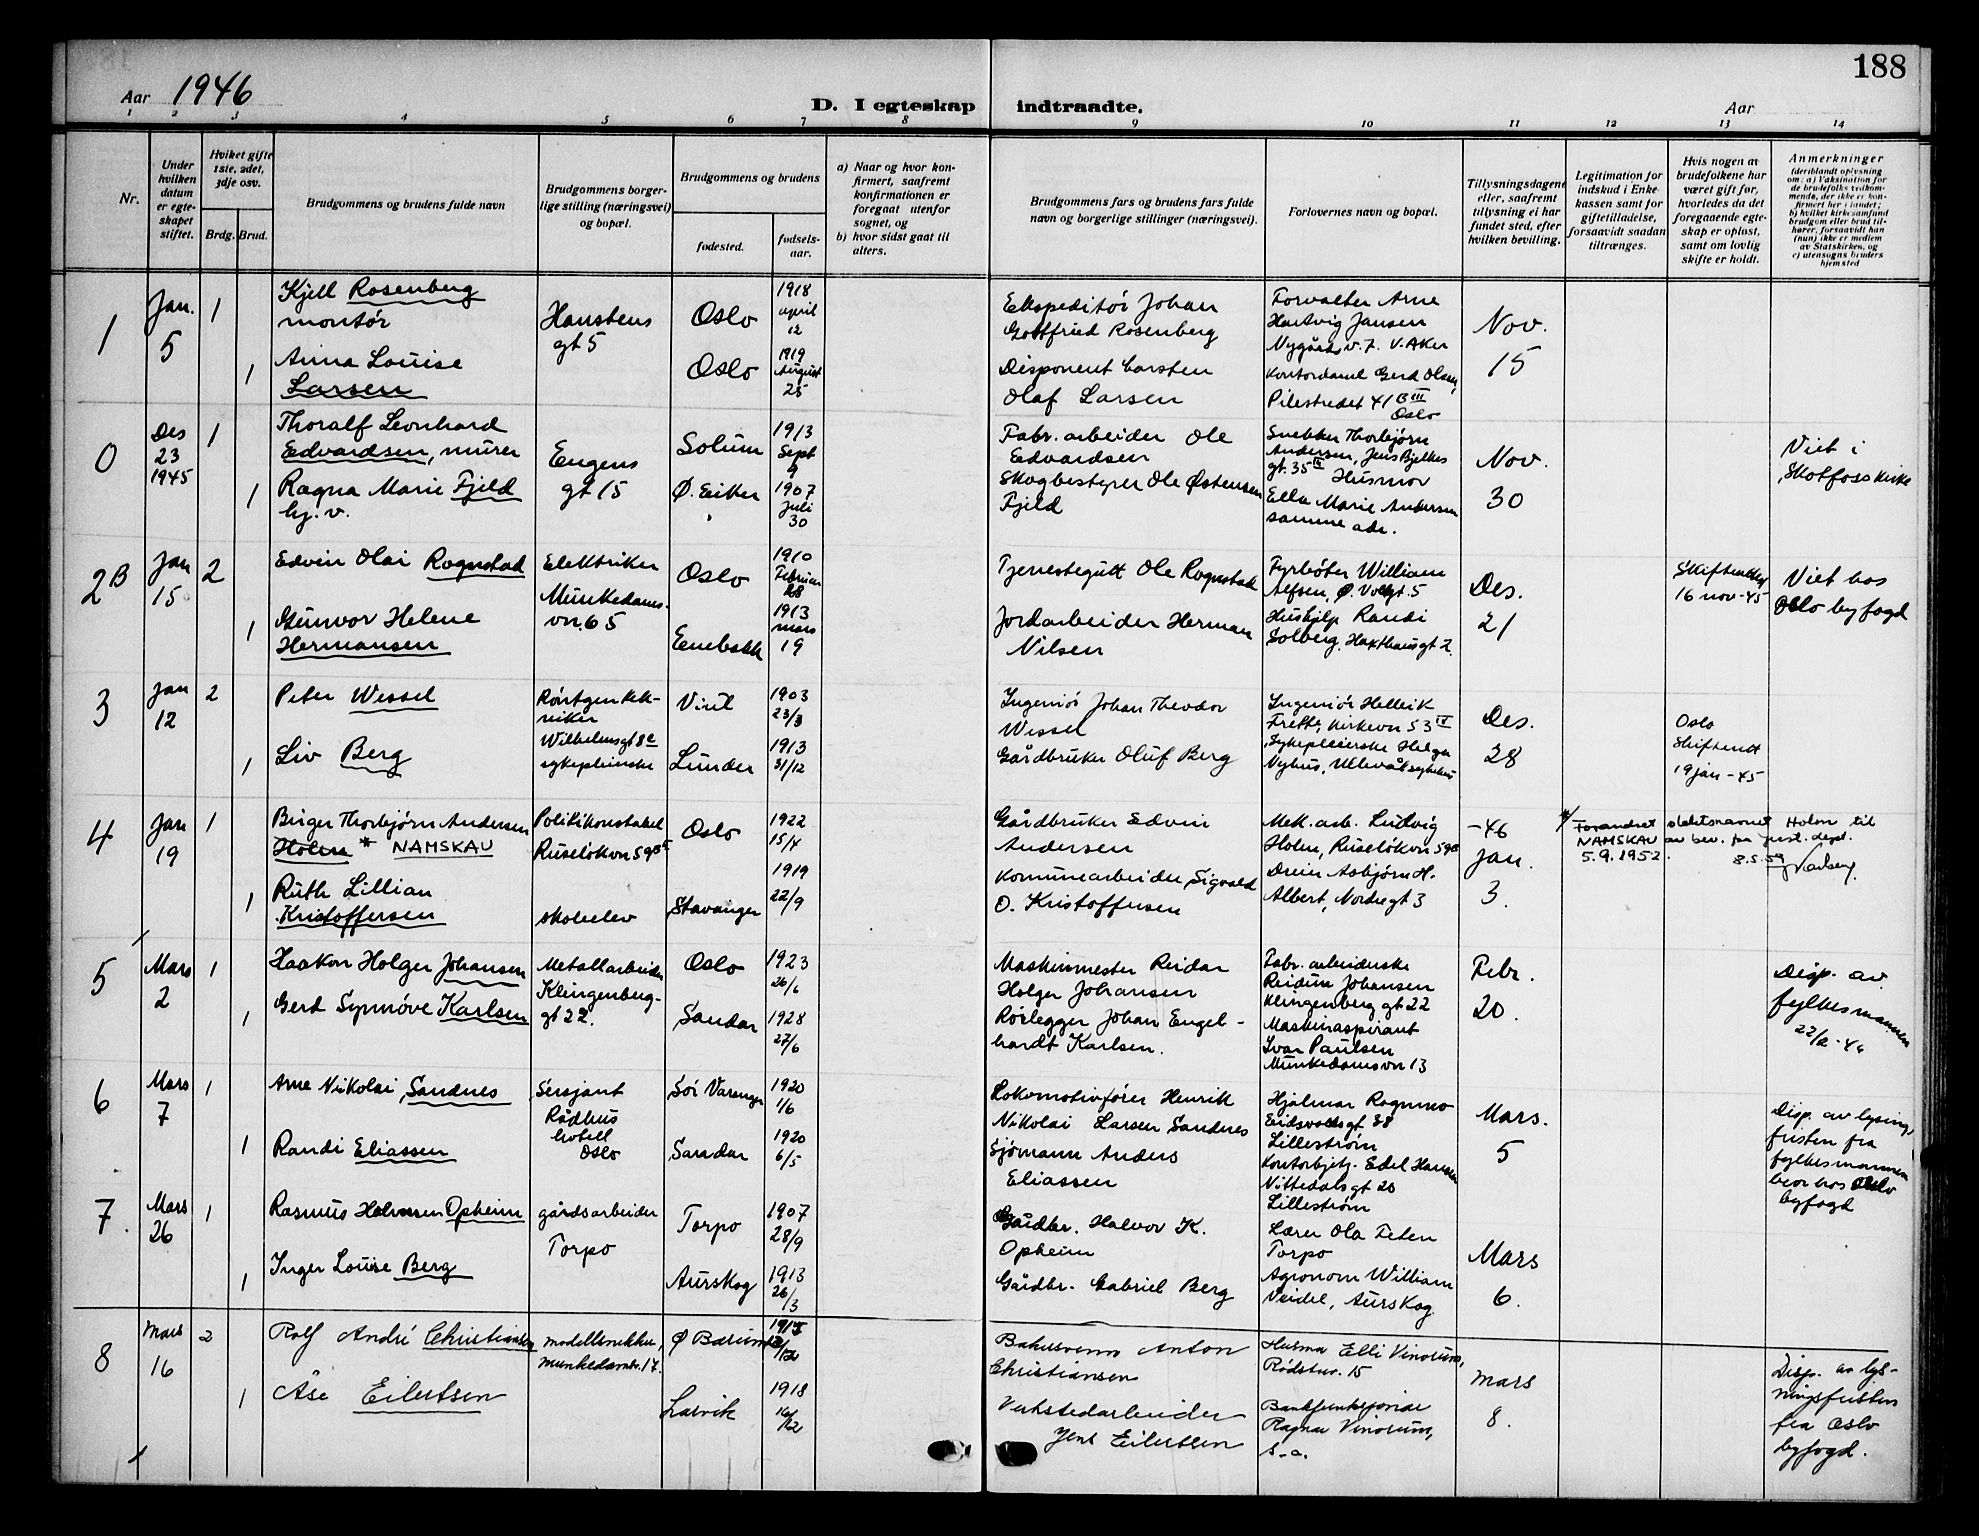 188
Aar 1946
D. I egteskap indtraadte.
Aar
1 2 3 4 5 6 7 8 9 10 11 12 13 14
Nr.
Under hvilken datum er egteskapet stiftet.
Hvilket gifte 1ste, 2det, 3dje osv.
Brdg. Brud.
Brudgommens og brudens fulde navn
Brudgommens borgerlige stilling (næringsvei) og bopæl.
Brudgommens og brudens
fødested.
fødselsaar.
a) Naar og hvor konfirmert, saafremt konfirmationen er foregaat utenfor sognet, og
b) hvor sidst gaat til alters.
Brudgommens fars og brudens fars fulde navn og borgerlige stillinger (næringsvei).
Forlovernes navn og bopæl.
Tillysningsdagene eller, saafremt tillysning ei har fundet sted, efter hvilken bevilling.
Legitimation for indskud i Enkekassen samt for giftetilladelse, forsaavidt saadan tiltrænges.
Hvis nogen av brudefolkene har været gift før, hvorledes da det foregaaende egteskap er opløst, samt om lovlig skifte er holdt.
Anmerkninger (deriblandt oplysning om: a) Vaksination for de brudefolks vedkommende, der ikke er konfirmert her i landet; b) hvilket kirkesamfund brudgom eller brud tilhører, forsaavidt han (hun) ikke er medlem av Statskirken, og c) utensogns bruders hjemsted
1
Jan. 5
1
Kjell Rosenberg
montør
1
Anna Louise
Larsen
Hanstens
gt 5
Oslo
1918
april
12
Oslo
1919
August
25
Ekspeditør Johan
Gottfried Rosenberg
Disponent Carsten
Olaf Larsen
Forvalter Arne
Hartvig Jansen
Nygårdsv. 7. V. Aker
Kontordame Gerd Olsen,
Pilestredet 41 B III
Oslo
Nov.
15
0
Des
23
1945
1
Thoralf Leonhard
Edvardsen, murer
1
Ragna Marie Fjeld
hj. v.
Eugens
gt 15
Solum
1913
Sept
9
Ø. Eiker
1907
Juli
30
Fabr. arbeider Ole
Edvardsen
Skogbestyrer Ole Østensen
Fjeld
Snekker Thorbjørn
Andersen, Jens Bjelkes
gt. 35 IV Husmor
Ella Marie Andersen
samme adr.
Nov.
30
Viet i
Skotfoss kirke
2B
Jan
15
2
Edvin Olai Rognstad
1
Gunvor Helene
Hermansen
Elektriker
Munkedams-
vn. 65
Oslo
1910
Februar
28
Enebakk
1913
mars
19
Tjenestegutt Ole Rognstad
Jordarbeider Herman
Nilsen
Fyrbøter William
Alfsen, Ø. Vollgt. 5
Hushjelp Randi
Solberg, Haxthausgt 2.
Des.
21
16 nov - 45
Viet hos
Oslo byfogd
3
Jan
12
2
Peter Wessel
1
Liv Berg
Røntgentek-
niker
Wilhelmsgt 8c
sykepleierske
1903
23/3
Lunder
1913
31/12
Ingeniør Johan Theodor
Wessel
Gårdbruker Oluf Berg
Ingeniør Helleik
Frette, Kirkevn 53 IV
Sykepleierske Helga
Nyhus, Ullevål sykehus
Des.
28
Oslo
Skifterett
19 jan - 45
4
Jan
19
1
Birger Thorbjørn Andersen
Holm * NAMSKAU
1
Ruth Lillian
Kristoffersen
Politikonstabel
Ruseløkvn 59B
skoleelev
Oslo
1922
15/4
Stavanger
1919
22/9
Gårdbruker Edvin
Andersen
Kommunearbeider Sigvald
O. Kristoffersen
Mek. arb. Ludvig
Holm, Ruseløkvn 59B
Dreier Asbjørn H.
Albert, Nordregt 3
-46
Jan.
3.
*/ Forandret slektsnavnet Holm til
NAMSKAU av bev. fra Just. dept.
5.9.1952. 8.5.59
5
Mars
2
1
Haakon Holger Johansen
1
Gerd Synnøve Karlsen
Metallarbeider
Klingenberg-
gt 22.
Oslo
1923
26/6
Sandar
1928
22/6
Maskinmester Reidar
Holger Johansen
Rørlegger Johan Engel-
hardt Karlsen.
Fabr. arbeiderske
Reidun Johansen
Klingenberg gt 22
Maskinaspirant
Ivar Paulsen
Munkedamsvn 13
Febr.
20.
Disp. av
fylkesmannen
22/2 - 46
6
Mars
7
1
Arne Nikolai Sandnes
1
Randi Eliassen
Sersjant
Rådhus
hotell
Oslo
Sør Varanger
1920
1/6
Sandar
1920
6/5
Lokomotivfører Henrik
Nikolai Larsen Sandnes
Sjømann Anders
Eliassen
Hjalmar Rognmo
Eidsvollsgt 38
Lillestrøm
Kontorbetj. Edel Hansen
Nittedalsgt 20
Lillestrøm
Mars.
5
Disp. av lysings
fristen fra
fylkesmannen
byfogd
7.
Mars
26
1
Rasmus Halvorsen Opheim
1
Inger Louise Berg
gårdsarbeider
Torpo
Torpo
1907
28/9
Aurskog
1913
26/3
Gårdbr. Halvor K.
Opheim
Gårdbr. Gabriel Berg
Lærer Ola Feten
Torpo
Agronom William
Veidel, Aurskog
Mars
6.
8
Mars
16
2
Rolf André Christiansen
1
Åse Eilertsen
modellsnekker,
Munkedamsv. 17.
Ø Bærum
Larvik
1918
16/12
Anton
Christiansen
Verkstedarbeider
Jens Eilertsen
Husmor Elli Vinorum,
Rødstuv. 15
Bankfunksjonær
Ragnar Vinorum,
s. a.
Mars
8.
Disp. av lys-
ningsfristen
fra Oslo
byfogd.